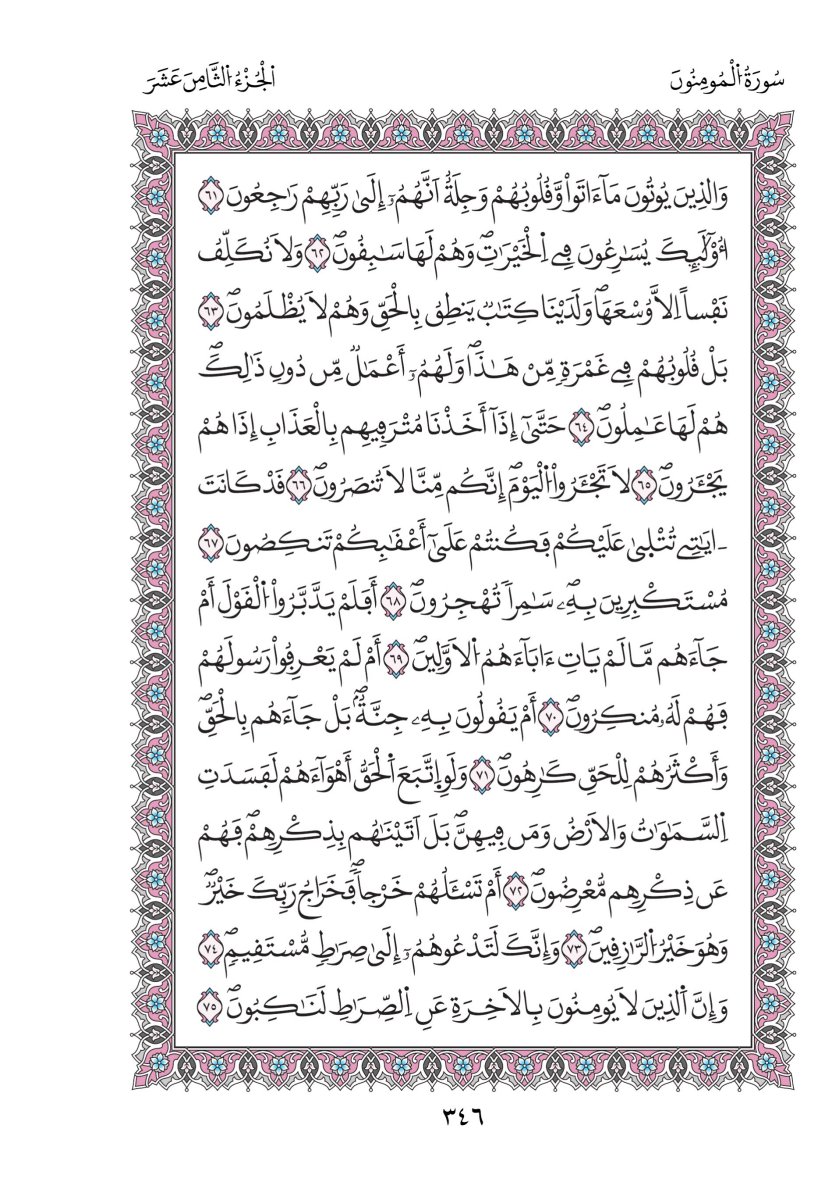 سُورَةُ اُ۬لْمُومِنُونَ
اَ۬لْجُزْءُ اُ۬لثَّامِنَ عَشَرَ
وَالذِينَ يُوتُونَ مَآ ءَاتَواْ وَّفُلُوبُهُمْ وَجِلَةٌ اَنَّهُمُۥٓ إِلَىٰ رَبِّهِمْ رَٰجِعُونَ ٦١
أُوْلَٰٓئِكَ يُسَٰرِعُونَ فِے اِ۬لْخَيْرَٰتِۖ وَهُمْ لَهَا سَٰبِفُونَۖ ٦٢ وَلَا نُكَلِّفُ
نَفْساً اِلَّا وُسْعَهَاۖ وَلَدَيْنَا كِتَٰبٞ يَنطِقُ بِالْحَقِّ وَهُمْ لَا يُظْلَمُونَۖ ٦٣
بَلْ فُلُوبُهُمْ فِے غَمْرَةٖ مِّنْ هَٰذَاۖ وَلَهُمُۥٓ أَعْمَٰلٞ مِّن دُونِ ذَٰلِكَۖ
هُمْ لَهَا عَٰمِلُونَۖ ٦٤ حَتَّىٰٓ إِذَآ أَخَذْنَا مُتْرَفِيهِم بِالْعَذَابِ إِذَا هُمْ
يَجْـَٔرُونَۖ ٦٥ لَا تَجْـَٔرُواْ اُ۬لْيَوْمَۖ إِنَّكُم مِّنَّا لَا تُنصَرُونَۖ ٦٦ فَدْ كَانَتَ
ـ ايَٰتِے تُتْلَىٰ عَلَيْكُمْ فَكُنتُمْ عَلَىٰٓ أَعْفَٰبِكُمْ تَنكِصُونَ ٦٧
مُسْتَكْبِرِينَ بِهِۦۖ سَٰمِراٗ تُهْجِرُونَۖ ٦٨ أَفَلَمْ يَدَّبَّرُواْ اُ۬لْفَوْلَ أَمْ
جَآءَهُم مَّا لَمْ يَاتِ ءَابَآءَهُمُ اُ۬لَاوَّلِينَۖ ٦٩ أَمْ لَمْ يَعْرِفُواْ رَسُولَهُمْ
فَهُمْ لَهُۥ مُنكِرُونَۖ ٧٠ أَمْ يَفُولُونَ بِهِۦ جِنَّةُۢۖ بَلْ جَآءَهُم بِالْحَقِّۖ
وَأَكْثَرُهُمْ لِلْحَقِّ كَٰرِهُونَۖ ٧١ وَلَوِ اِ۪تَّبَعَ اَ۬لْحَقُّ أَهْوَآءَهُمْ لَفَسَدَتِ
اِ۬لسَّمَٰوَٰتُ وَالَارْضُ وَمَن فِيهِنَّۖ بَلَ اَتَيْنَٰهُم بِذِكْرِهِمْۖ فَهُمْ
عَن ذِكْرِهِم مُّعْرِضُونَۖ ٧٢ أَمْ تَسْـَٔلُهُمْ خَرْجاٗۖ فَخَرَاجُ رَبِّكَ خَيْرٞۖ
وَهُوَ خَيْرُ اُ۬لرَّٰزِفِينَۖ ٧٣ وَإِنَّكَ لَتَدْعُوهُمُۥٓ إِلَىٰ صِرَٰطٖ مُّسْتَفِيمٖۖ ٧٤
وَإِنَّ اَ۬لذِينَ لَا يُومِنُونَ بِالَاخِرَةِ عَنِ اِ۬لصِّرَٰطِ لَنَٰكِبُونَۖ ٧٥
٣٤٦